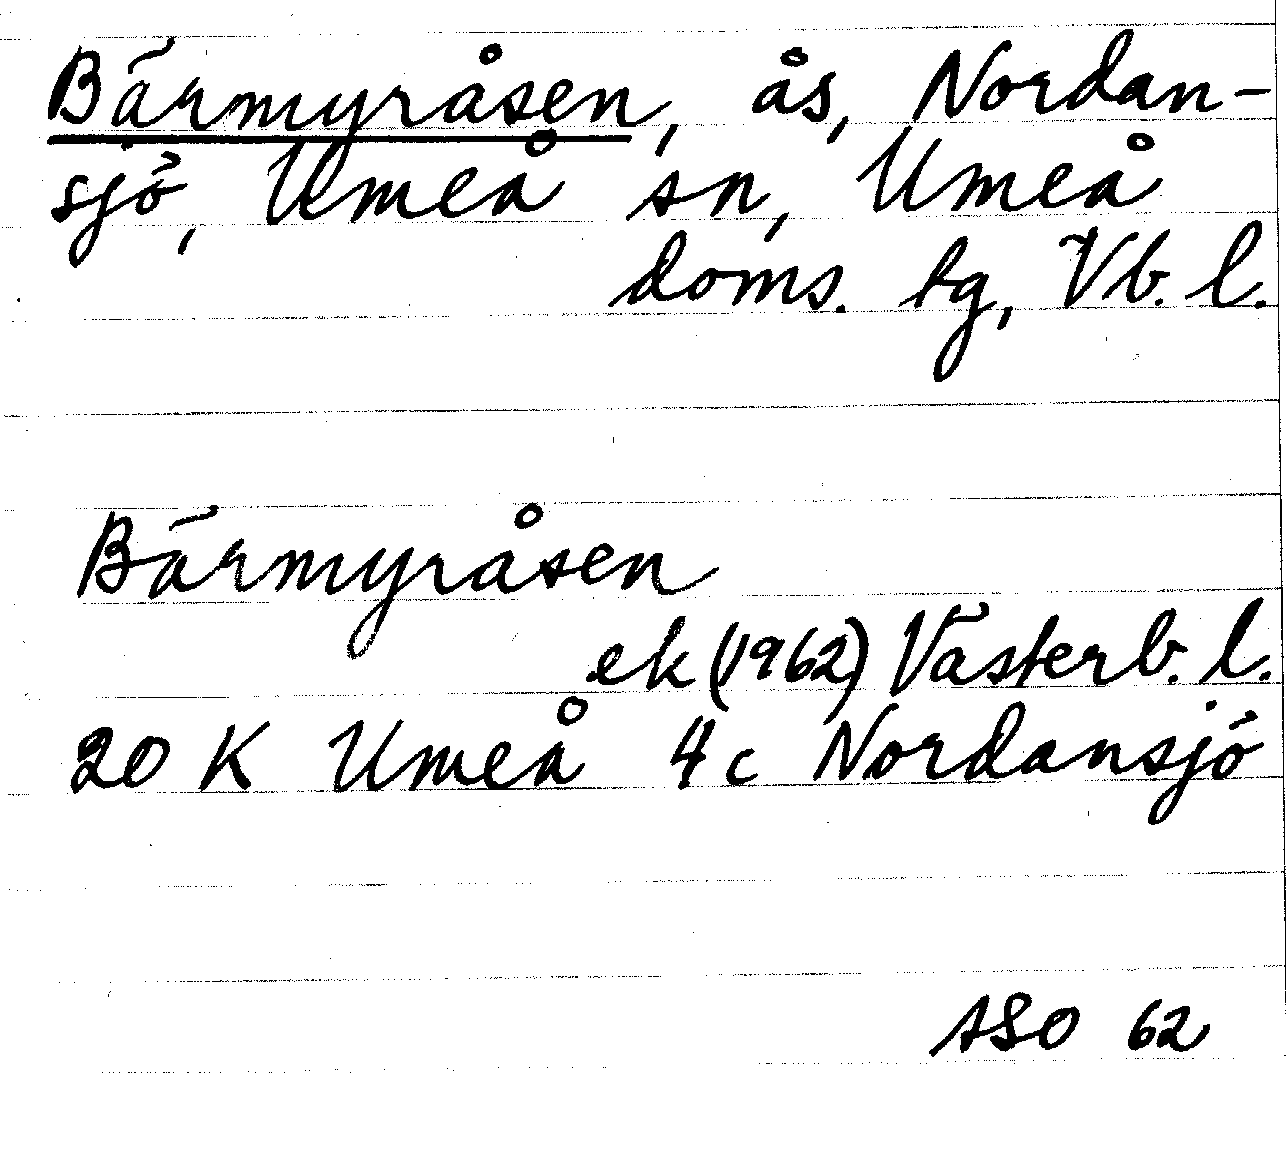 Bärmyråsen, ås, Nordan-
sjö, Umeå sn, Umeå
doms. tg, Vb. l.
Bärmyråsen
ek (1962) Västerb. l.
20 K Umeå 4c Nordansjö
ASO 62